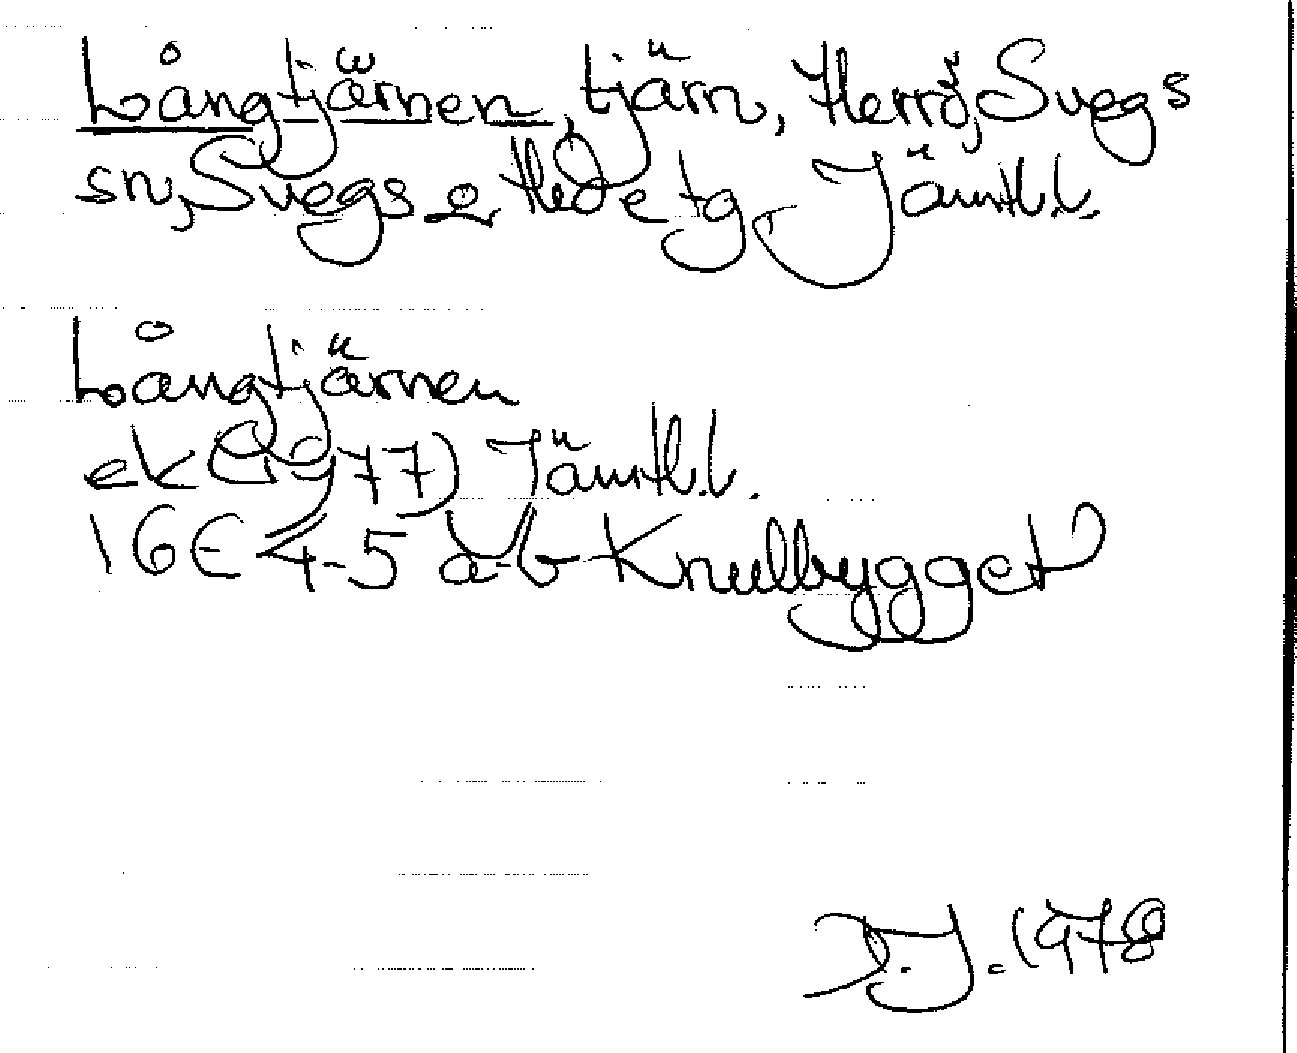 Långtjärnen, tjärn, Herrö, Svegs
sn, Svegs o. Hede tg. Jämtl.l.
Långtjärnen
ek (1977) Jämtl.l.
16E 4-5 a-b Knullbygget
D.J. 1978